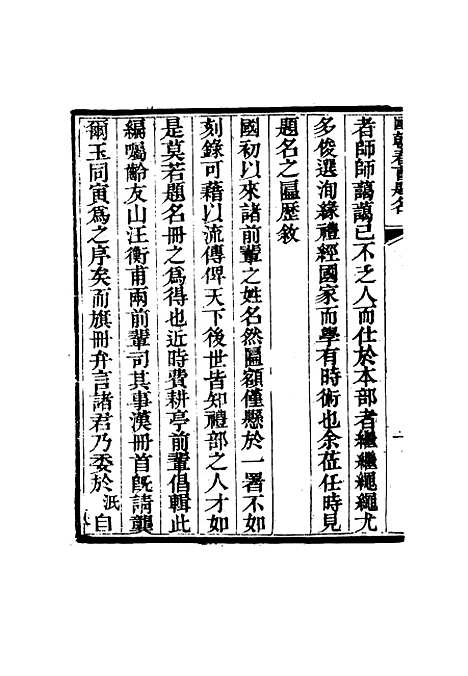 國朝春曹題名
一
者師師藹藹已不乏人而仕於本部者繼繼繩繩尤
多俊選洵緣禮經國家而學有時術也余莅任時見
題名之匾歷敘
國初以來諸前輩之姓名然匾額僅懸於一署不如
刻錄可藉以流傳俾天下後世皆知禮部之人才如
是莫若題名冊之為得也近時費耕亭前輩倡輯此
編囑齡友山汪衡甫兩前輩司其事漢冊首既請龔
爾玉同寅為之序矣而旗冊弁言諸君乃委於泯自